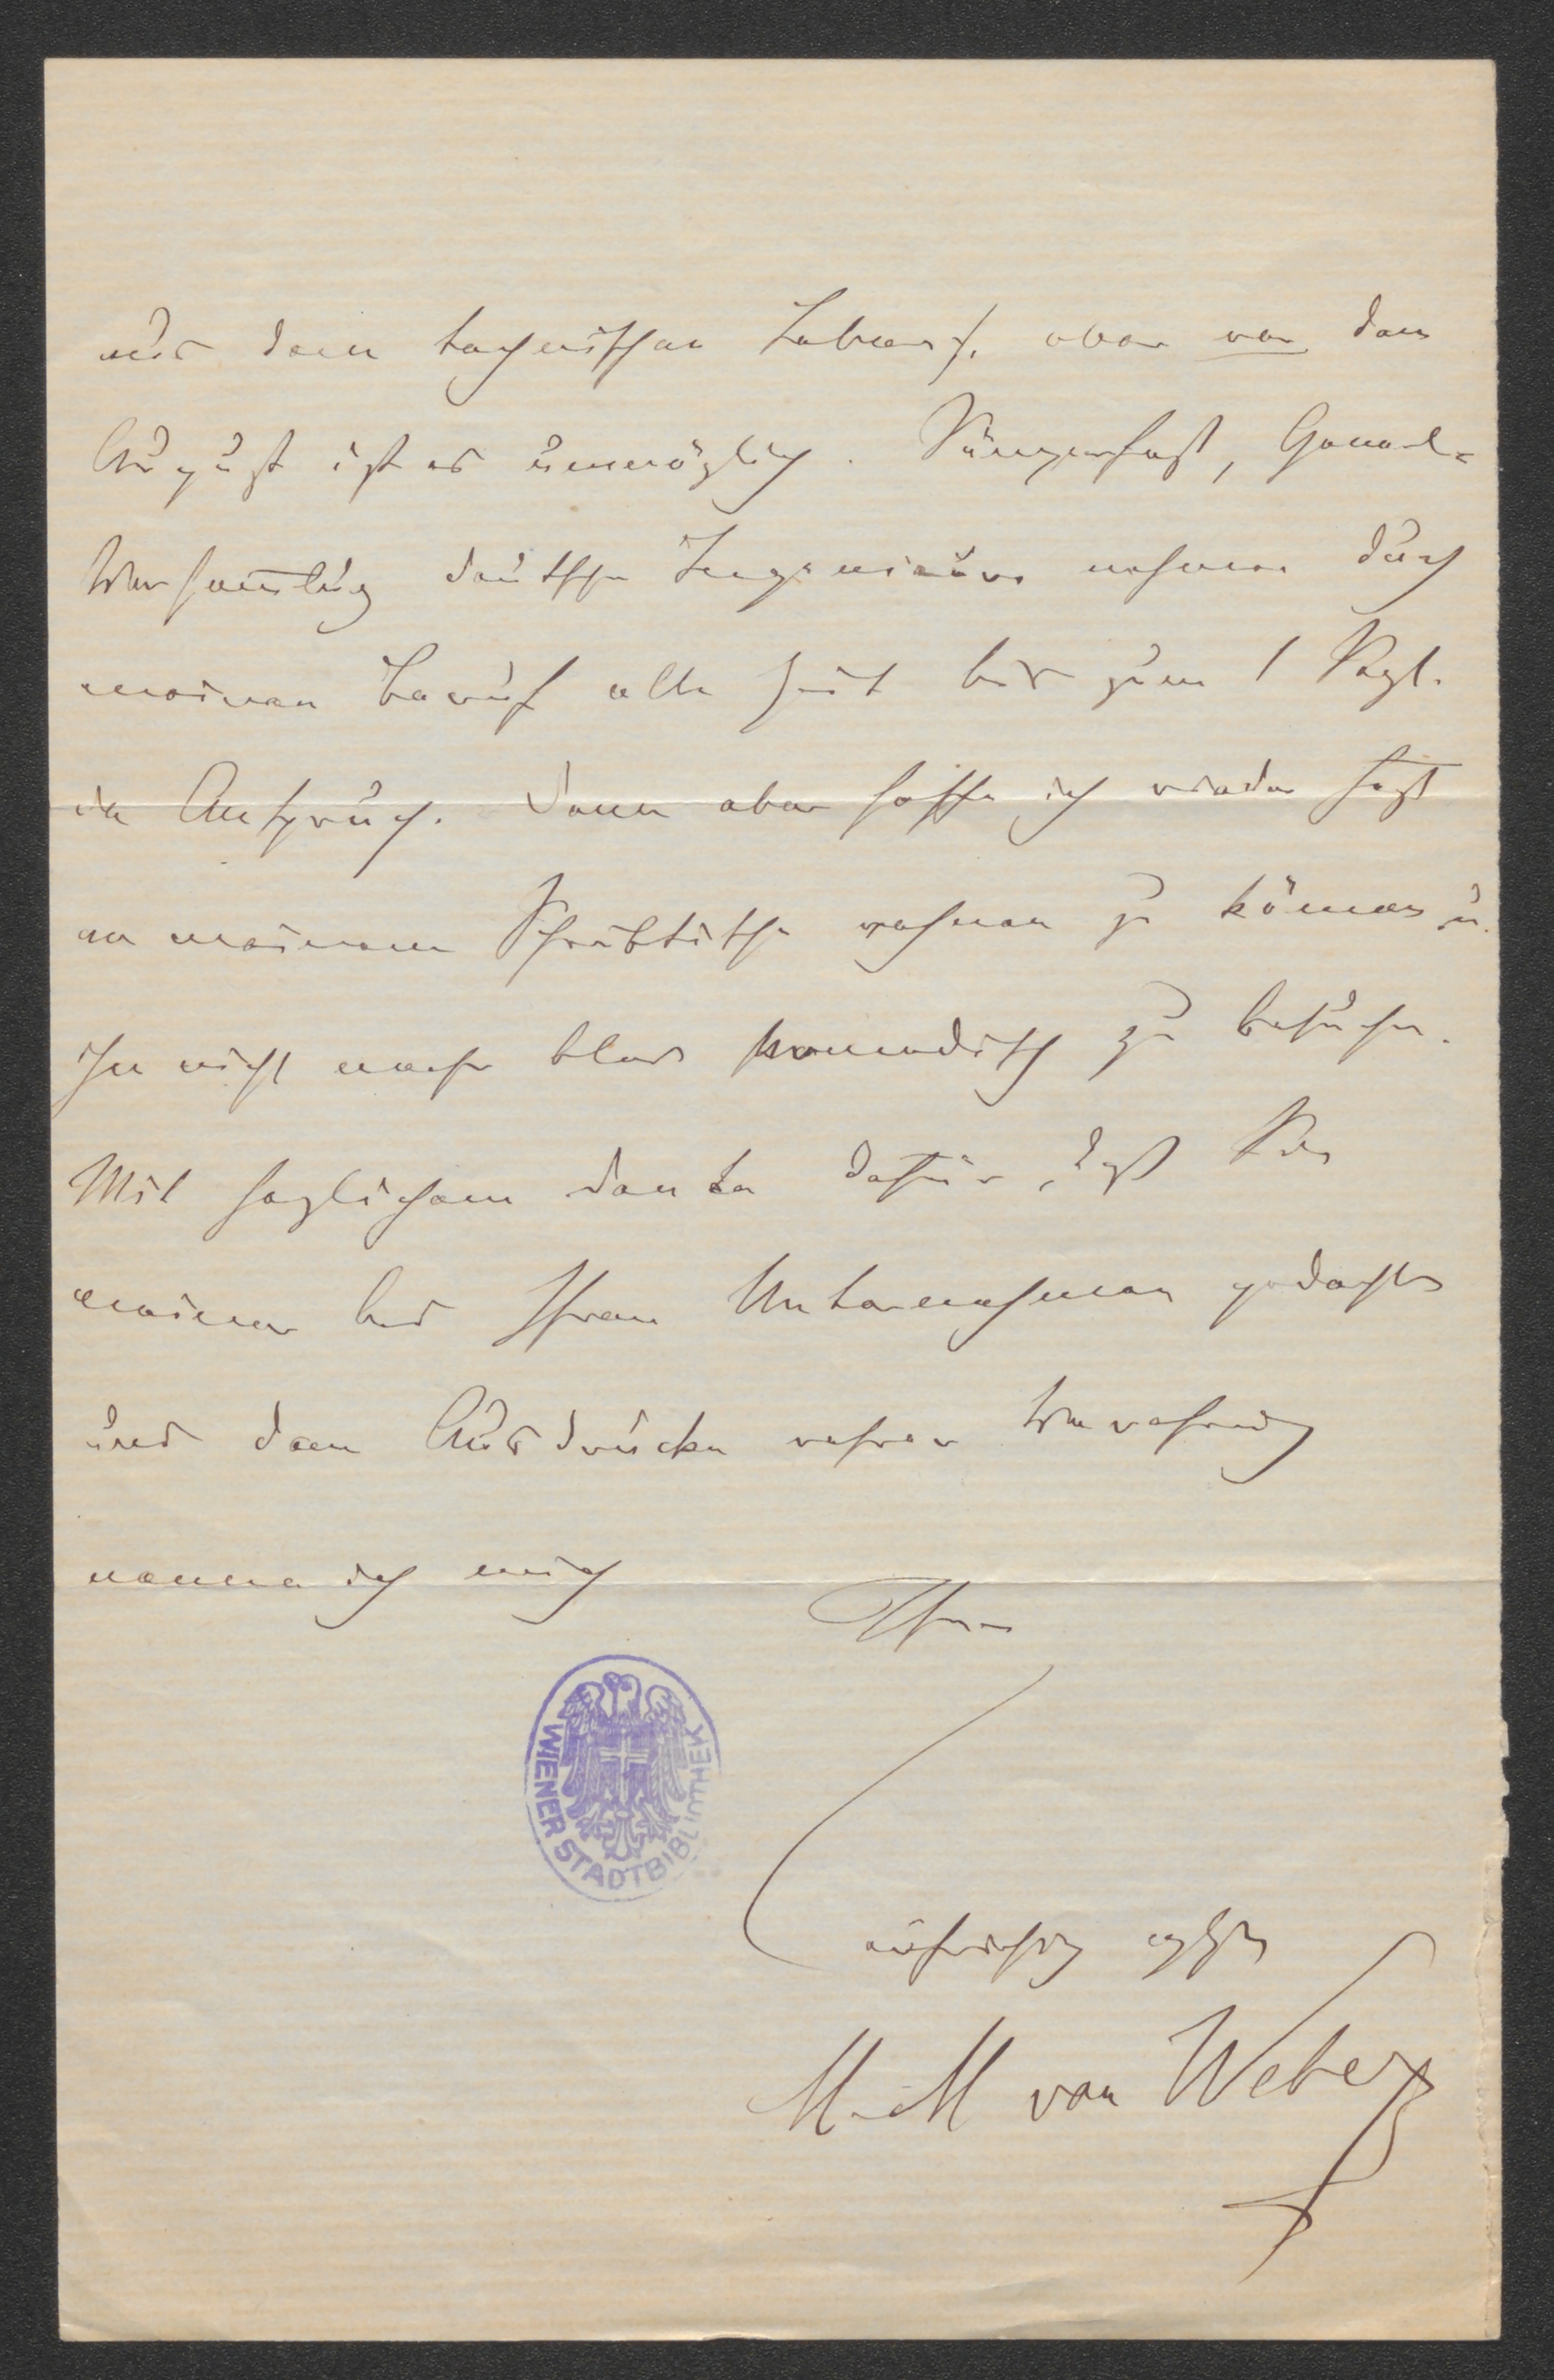 aus dem technischen Leben), aber vor dem
August ist es unmöglich. Sängerfest, General-
Versamlung deutscher Ingenieure nehmen durch
meinen Beruf alle Zeit bis zum 1 Sept.
in Anspruch. Dann aber hoffe ich wieder fest
an meinem Schreibtische wohnen zu können u.
ihn nicht mehr blos nomadisch zu besuchen.
Mit herzlichem Danke dafür, daß Sie
meiner bei Ihrem Unternehmen gedachten
und dem Ausdrucke wahrer Verehrung
nenne ich mich
Ihren
aufrichtig ergebenen
M. M von Weber
WIENER STADTBIBLIOTHEK